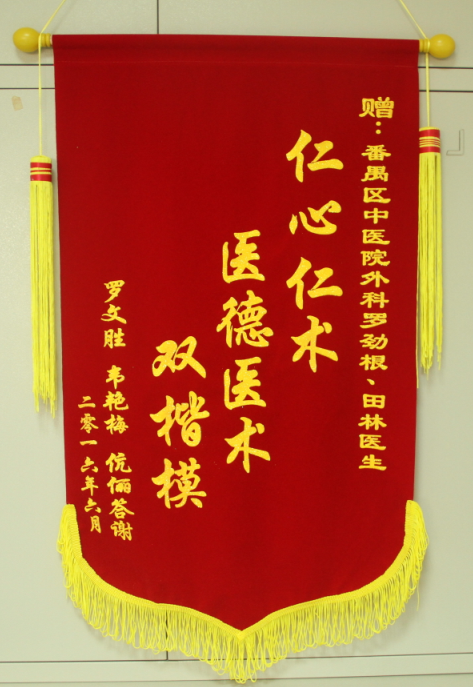 赠：番禺区中医院外科罗劲根、田林医生
仁心仁术
医德医术
双楷模
罗文胜 韦艳梅 伉俪答谢
二零一六年六月